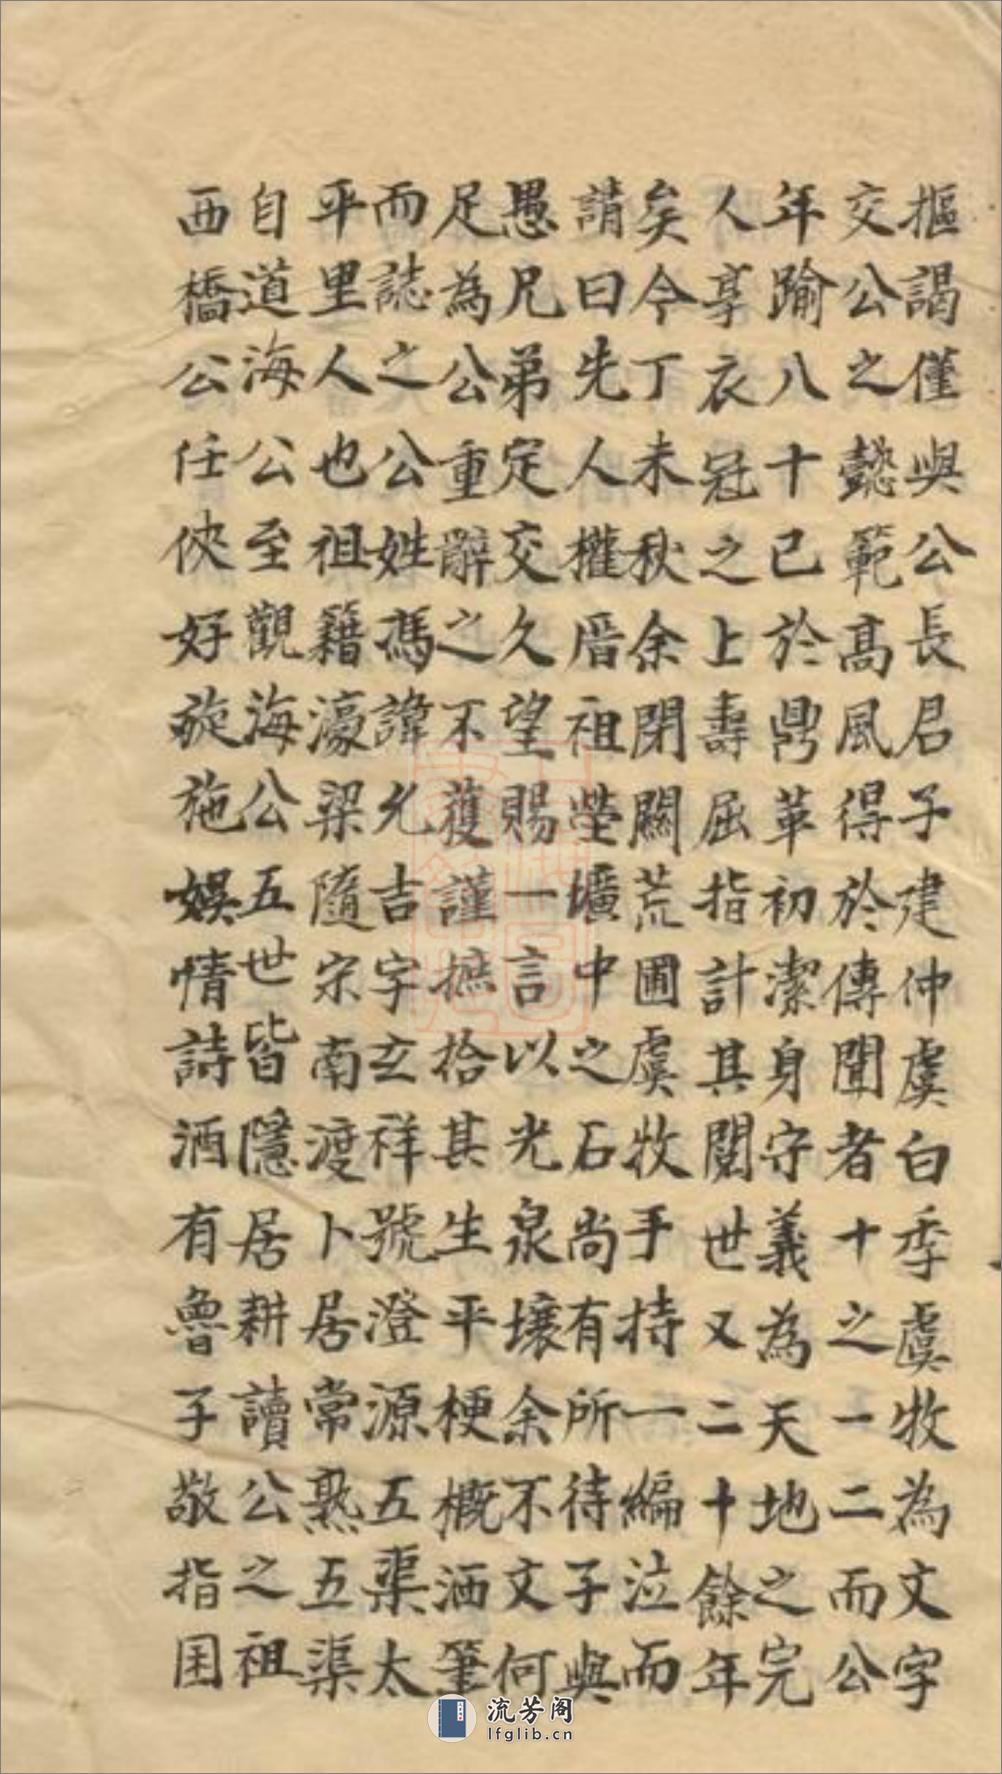 摳謁僅與公長君子建仲虞白季虞牧為文字
交公之懿範高風得於傳聞者十之一二而公
年踰八十已於鼎革初潔身守義為天地之完
人享衣冠之上壽屈指計其閱世又二十餘年
矣今丁未秋余閉關荒圃虞牧手持一編泣而
請曰先人權厝祖塋壙中之石尚有所待子與
愚兄弟定交久望賜一言以光泉壤余不文何
足為公重辭之不獲謹摭拾其生平梗概洒筆
而誌之公姓馮諱允吉字玄祥號澄源五渠太
平里人也祖籍濠梁隨宋南渡卜居常熟五渠
自道海公至觀海公五世皆隱居耕讀公之祖
西橋公任俠好施娛情詩酒有魯子敬指囷
流芳阁
lfglib.cn